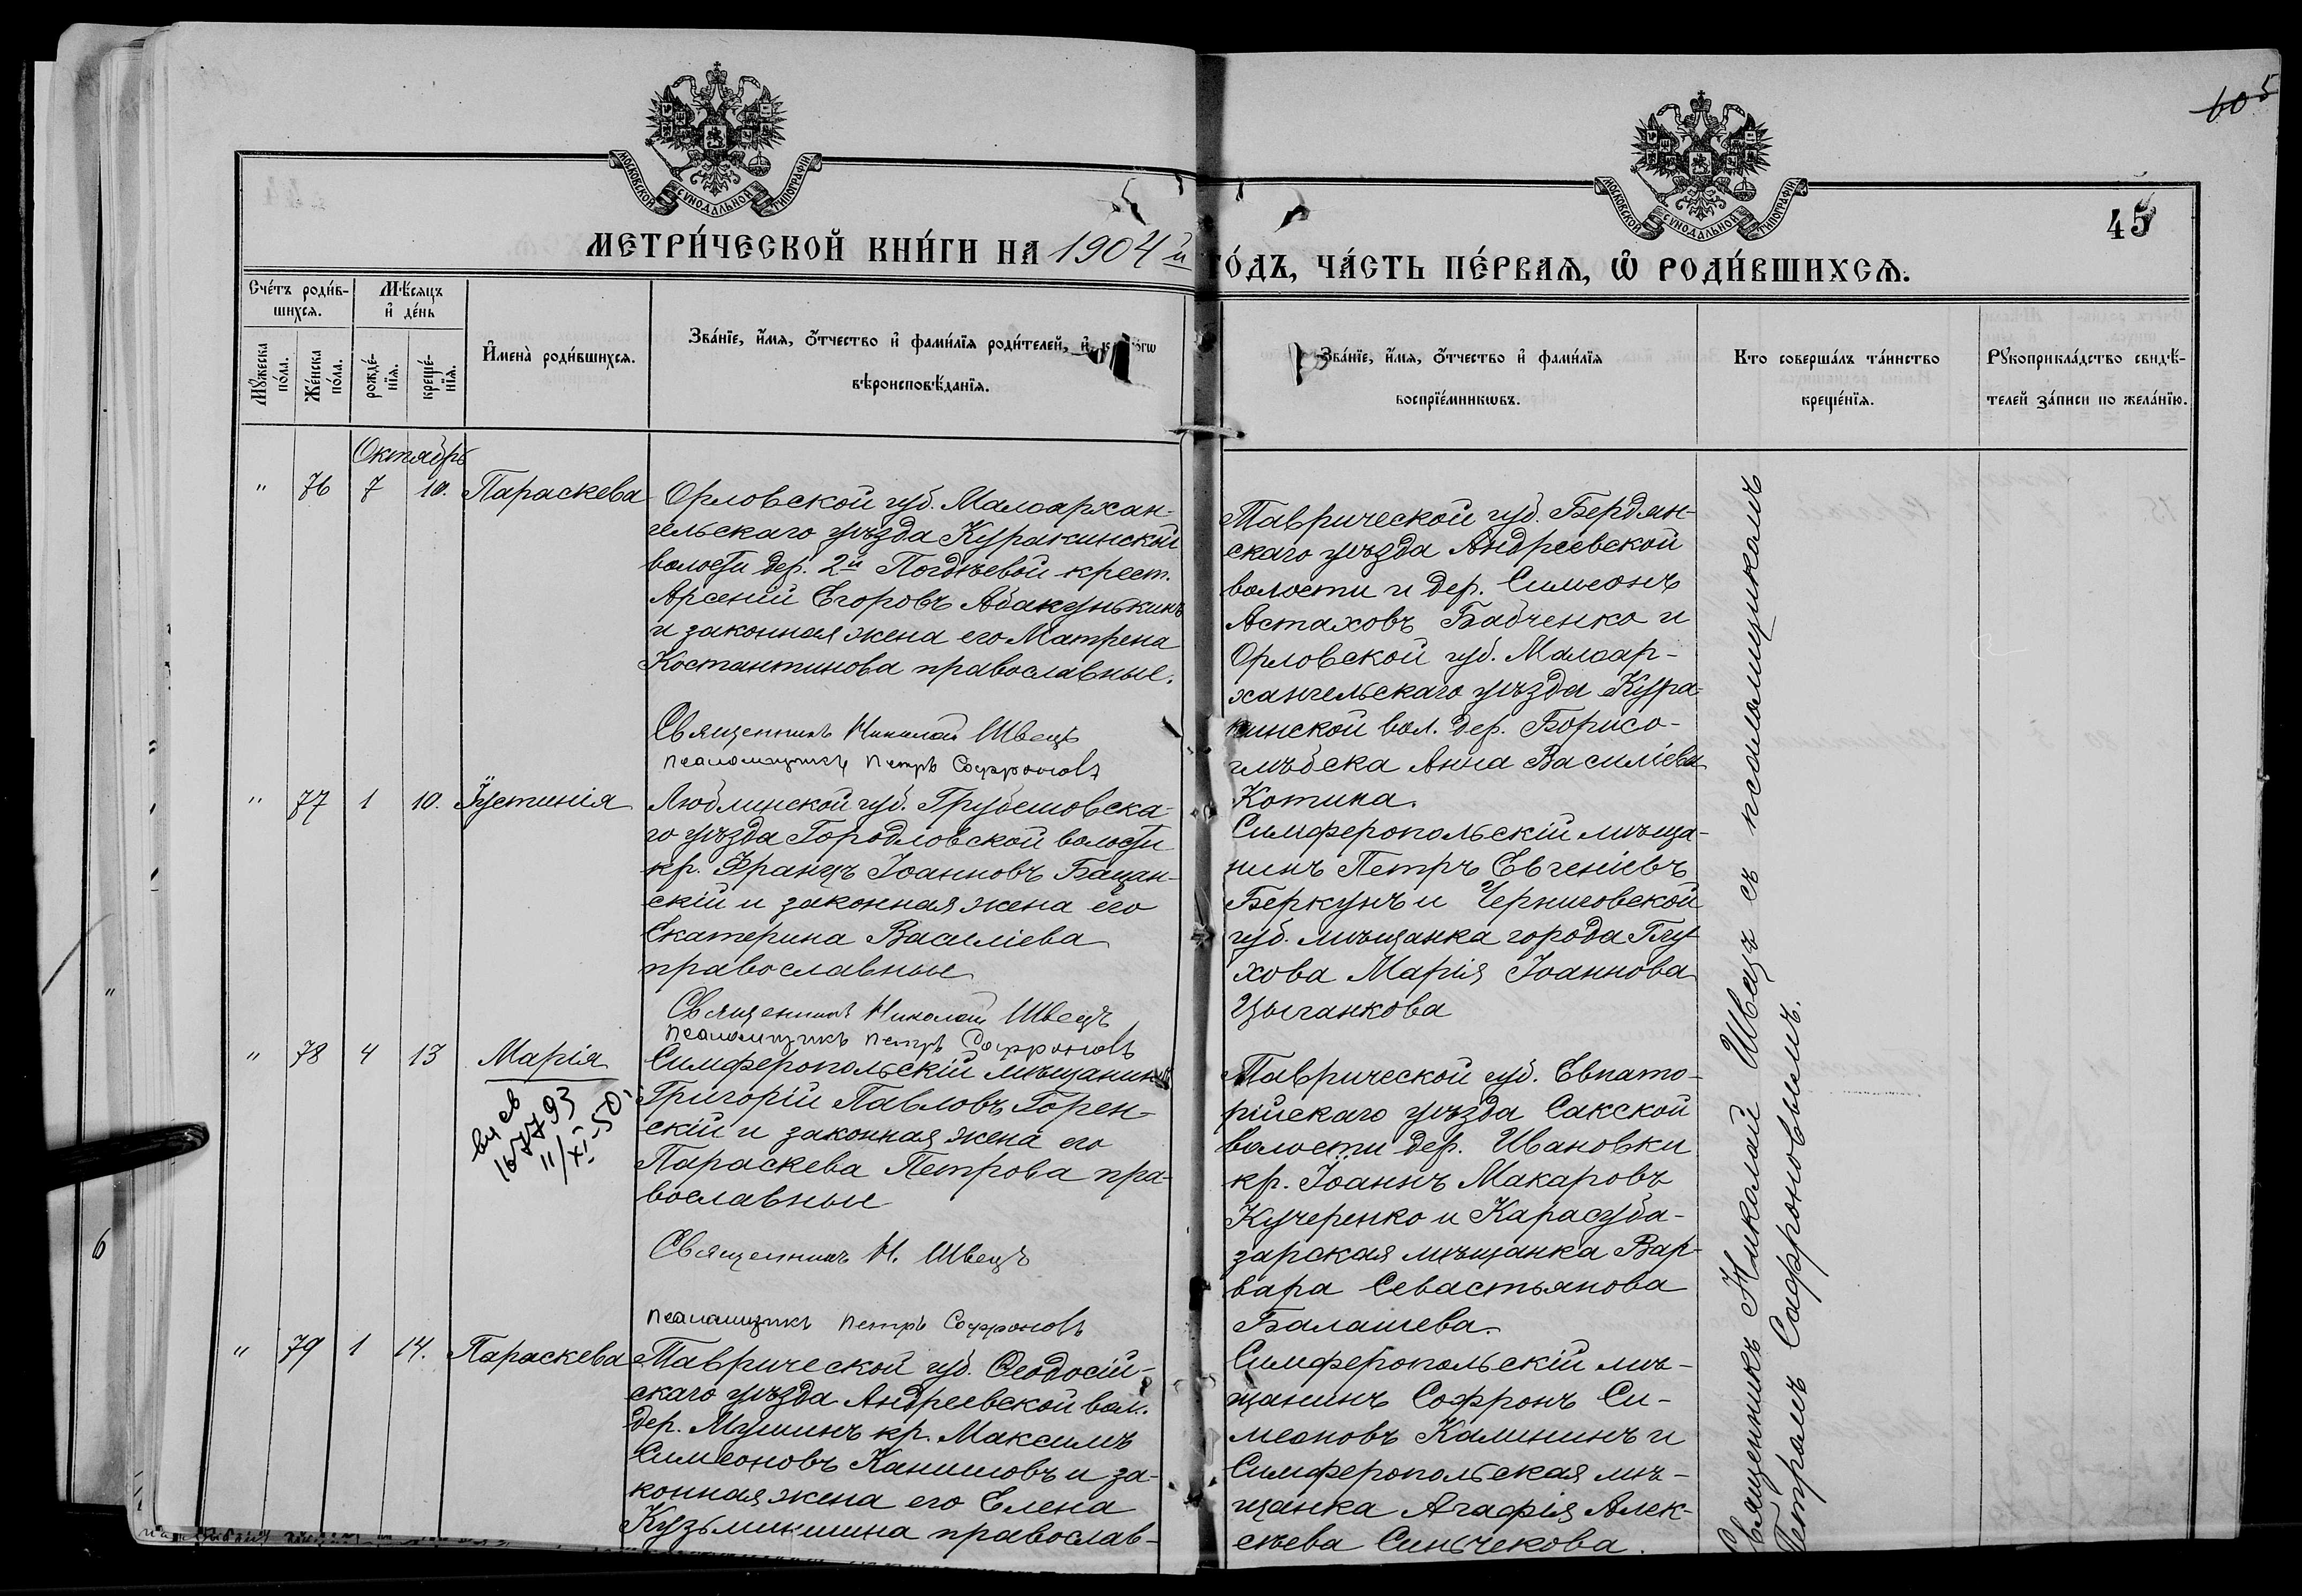 605
МОСКОВСКОЙ СѴНОДАЛЬНОЙ ТИПОГРАФІИ
МОСКОВСКОЙ СѴНОДАЛЬНОЙ ТИПОГРАФІИ.
45
МЕТРИ́ЧЕСКОЙ КНИ́ГИ НА 1904 й
ГО́ДЪ, ЧА́СТЬ ПЕ́РВАЯ, Ѡ҆ РОДИ́ВШИХСѦ.
Сче́тъ роди́в-
шихсѧ.
Мꙋ́жеска по́ла.
Же́нска по́ла.
Мѣ́сѧцъ
и҆ де́нь
рожде́-
нїѧ.
креще́-
нїѧ.
И҆мена̀ роди́вшихсѧ.
Зва́нїе, и҆́мѧ, ѻ҆́тчество и҆ фами́лїѧ роди́телей, и҆
вѣроисповѣ́данїѧ.
Зва́нїе, и҆́мѧ, ѻ҆́тчество и҆ фами́лїѧ
воспрїе́мникѡвъ.
Кто соверша́лъ та́инство
креще́нїѧ.
Рꙋкоприкла́дство свидѣ́-
телей за́писи по жела́нїю.
Октябрь
" 76 7 10. Параскева
Орловской губ. Малоархан-
гельскаго уѣзда Куракинской
волости дер. 2й Погдѣевой крест.
Арсений Егоровъ Абакунькинъ
и законная жена его Матрена
Костантинова православные.
Священникъ Николай Швецъ
псаломщикъ Петръ Софроновъ
Таврической губ. Бердян-
скаго уѣзда Андреевской
волости и дер. Симеонъ
Астаховъ Бабченко и
Орловской губ. Малоар-
хангельскаго уѣзда Кура-
кинской вол. дер. Борисо-
глѣбска Анна Василіева
Котина.
" 77 1 10. Іустинія
Люблинской губ. Грубешовска-
го уѣзда Городловской волости
кр. Францъ Іоанновъ Бацан-
скій и законная жена его
Екатерина Василіева
православные
Священникъ Николай Швецъ
псаломщикъ Петръ Софроновъ
Симферопольскій мѣща-
нинъ Петръ Евгеніевъ
Беркунъ и Черниговской
губ. мѣщанка города Глу-
хова Марія Іоаннова
Цыганкова
" 78 4 13 Марія
167793
11/XI-50
Симферопольскій мѣщанинъ
Григорій Павловъ Горен-
скій и законная жена его
Параскева Петрова пра-
вославные
Священникъ Н. Швецъ
псаломщикъ Петръ Софроновъ
Таврической губ. Евпато-
рійскаго уѣзда Сакской
волости дер. Ивановки
кр. Іоаннъ Макаровъ
Кучеренко и Карасуба-
зарская мѣщанка Вар-
вара Севастьянова
Балашева.
" 79 1 14. Параскева
Таврической губ. Ѳеодосій-
скаго уѣзда Андреевской вол.
дер. Мушинъ кр. Максимъ
Симеоновъ Канишовъ и за-
конная жена его Елена
Кузьмишина православ-
Симферопольскій мѣ-
щанинъ Софронъ Си-
меоновъ Калининъ и
Симферопольская мѣ-
щанка Агафія Алек-
сѣева Синьчекова.
Священникъ Николай Швецъ съ псаломщикомъ
Петромъ Софроновымъ.
6